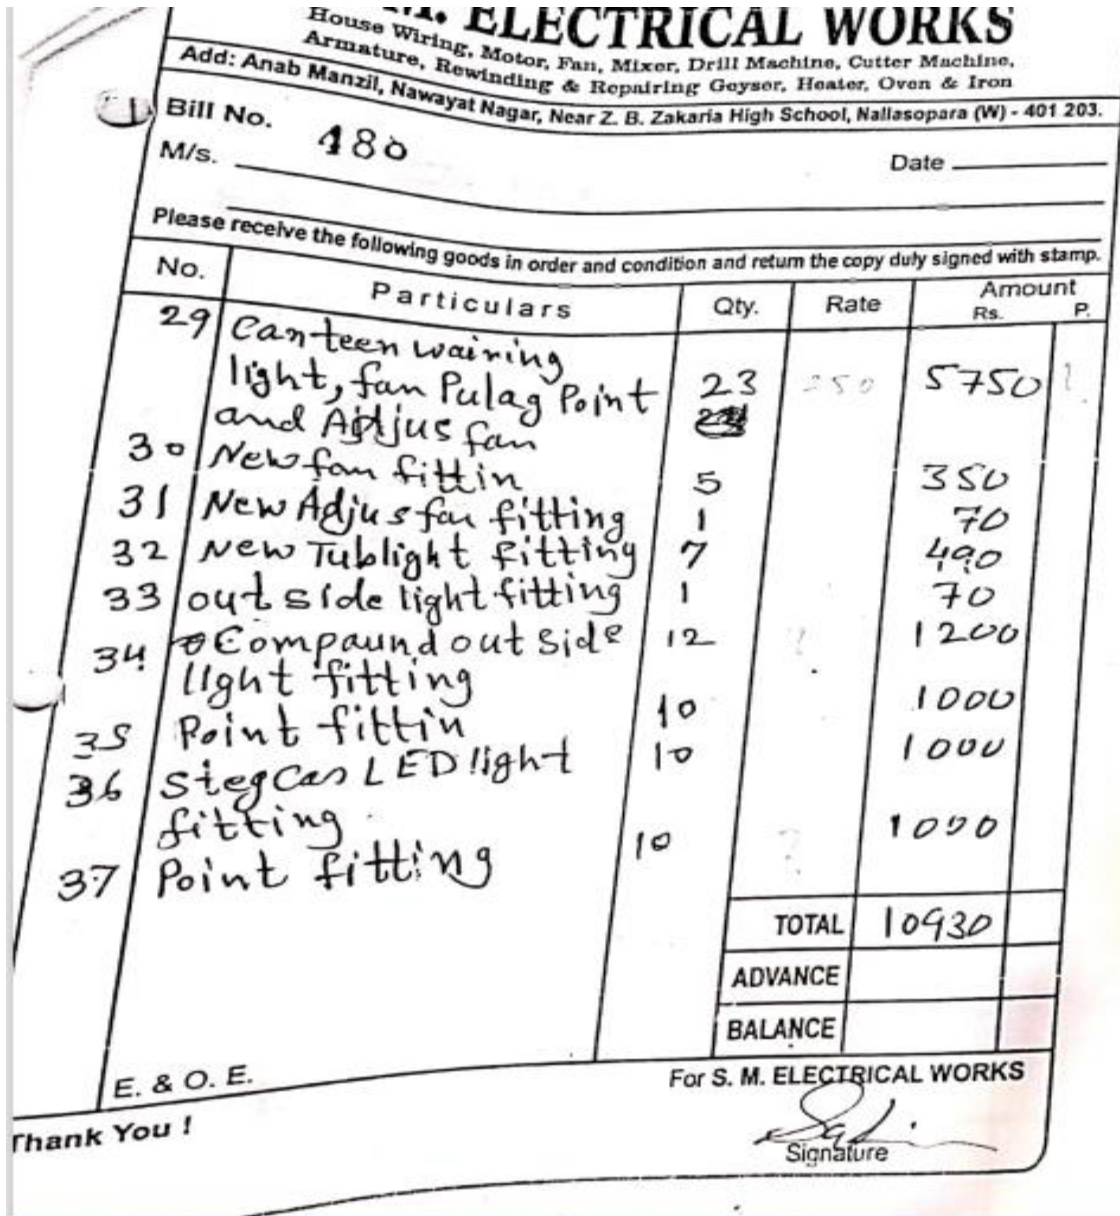 M. ELECTRICAL WORKS
House Wiring, Motor, Fan, Mixer, Drill Machine, Cutter Machine,
Armature, Rewinding & Repairing Geyser, Heater, Oven & Iron
Add: Anab Manzil, Nawayat Nagar, Near Z. B. Zakaria High School, Nallasopara (W) - 401 203.
Bill No. 480
M/s. Date
Please receive the following goods in order and condition and return the copy duly signed with stamp.
No. Particulars Qty. Rate Amount
Rs. P.
29 Canteen wairing
light, fan Pulag Point 23 250 5750
and Adjus fan
30 New fan fittin 5 350
31 New Adjus fan fitting 1 70
32 New Tublight fitting 7 490
33 out side light fitting 1 70
34 Compaund out side 12 1200
light fitting
35 Point fittin 10 1000
36 stegcas LED light 10 1000
fitting
37 Point fitting 10 1000
TOTAL 10930
ADVANCE
BALANCE
E. & O. E.
For S. M. ELECTRICAL WORKS
Thank You !
Signature